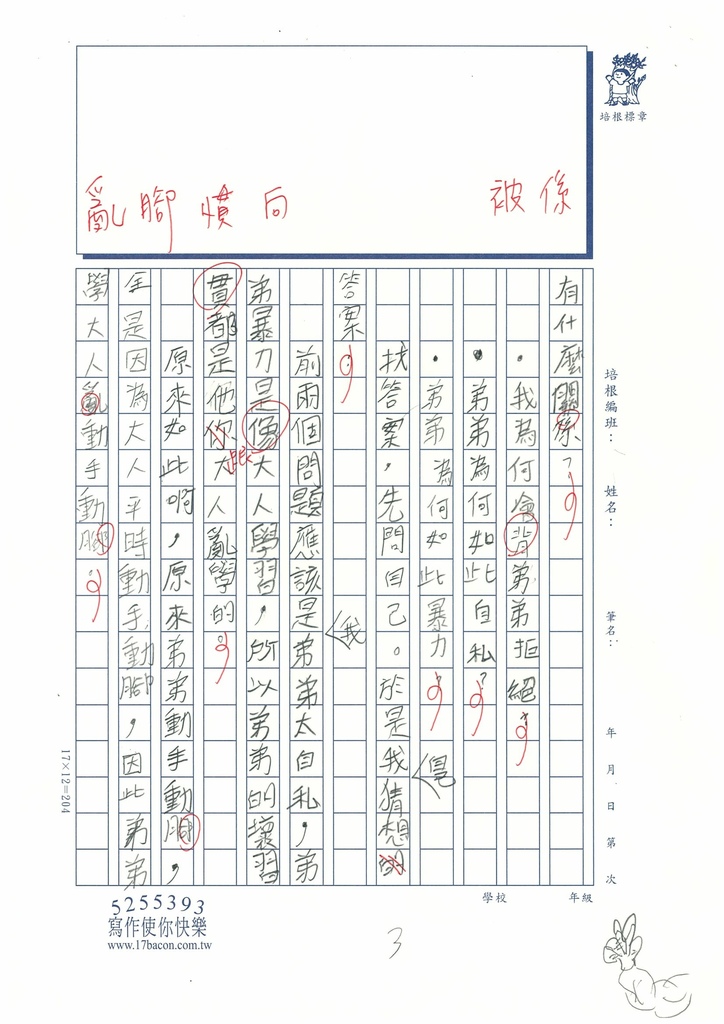 培根標章
係
被
向
憤
腳
亂
培根編班：
姓名：
筆名：
年 月 日 第 次
有什麼關係？
．我為何會背弟弟拒絕？
．弟弟為何如此自私？
．弟弟為何如此暴力？
找答案，先問自己。於是我猜想的
覓
答案
我
前兩個問題應該是弟弟太自私，弟
弟暴力是像大人學習，所以弟弟的壞習
貫都是他你大人亂學的。
跟
原來如此啊，原來弟弟動手動腳，
全是因為大人平時動手動腳，因此弟弟
學大人亂動手動腳。
17×12=204
學校
年級
5255393
寫作使你快樂
www.17bacon.com.tw
3